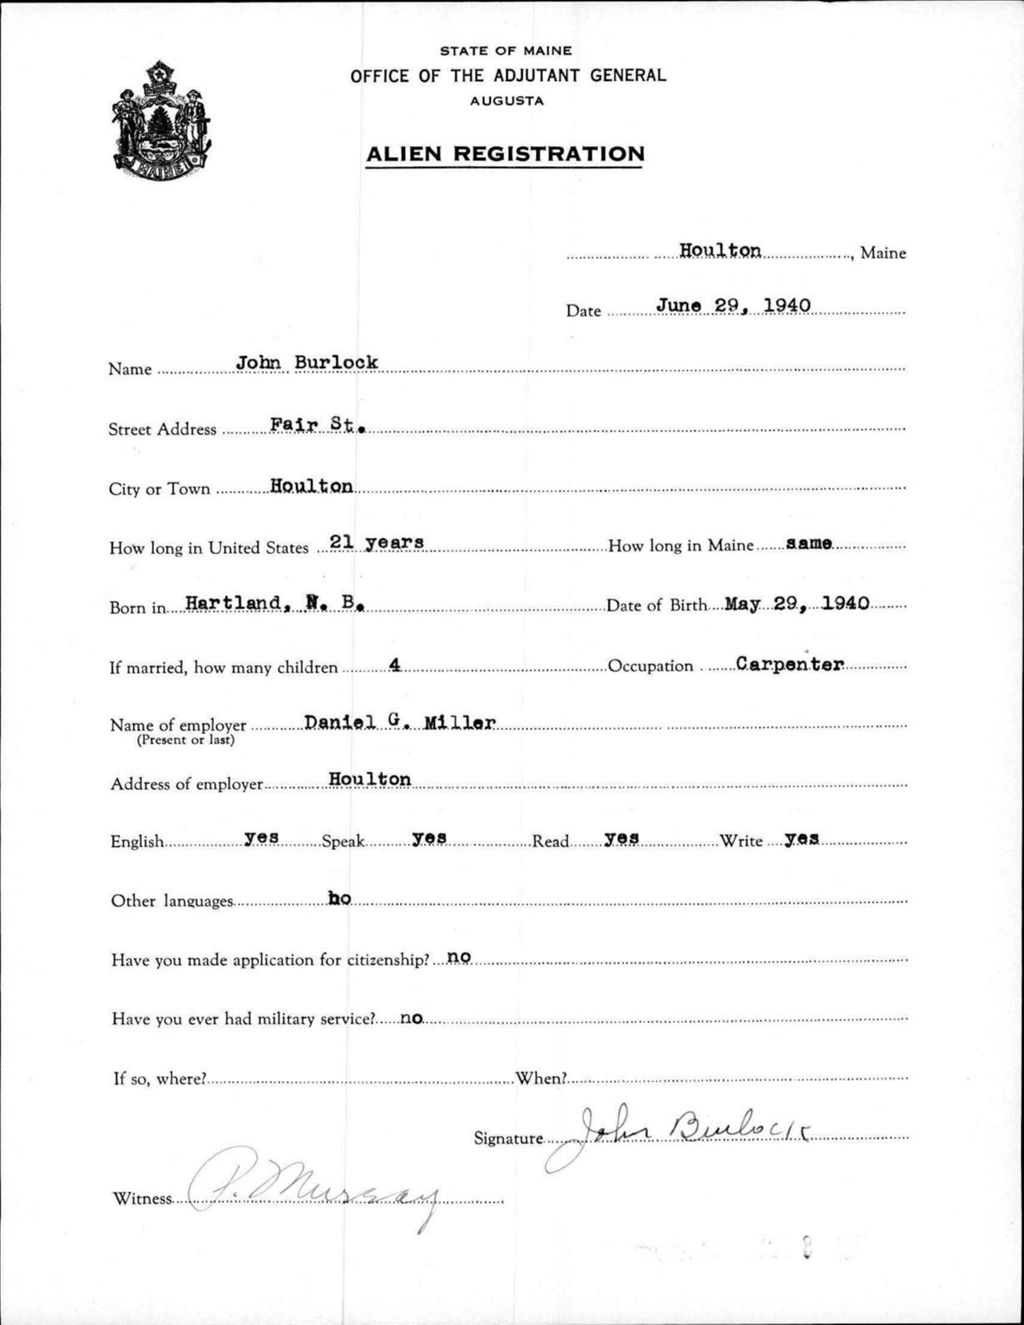 STATE OF MAINE
OFFICE OF THE ADJUTANT GENERAL
AUGUSTA
ALIEN REGISTRATION
MAINE
Houlton, Maine
Date June 29, 1940
Name John Burlock
Street Address Fair St.
City or Town Houlton
How long in United States 21 years How long in Maine same
Born in Hartland, N. B. Date of Birth May 29, 1940
If married, how many children 4 Occupation Carpenter
Name of employer Daniel G. Miller
(Present or last)
Address of employer Houlton
English yes Speak yes Read yes Write yes
Other languages no
Have you made application for citizenship? no
Have you ever had military service? no
If so, where? When?
Signature John Burlock
Witness P. Murray